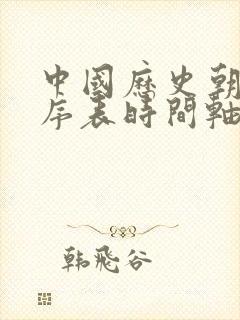 中國歷史朝
序表時間軸
韩飛谷